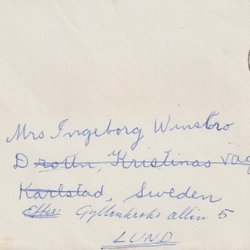 Mrs Ingeborg Winsbro
Drottn. Kristinas Väg
Karlstad, Sweden
Gyllenkroks allén 5
LUND